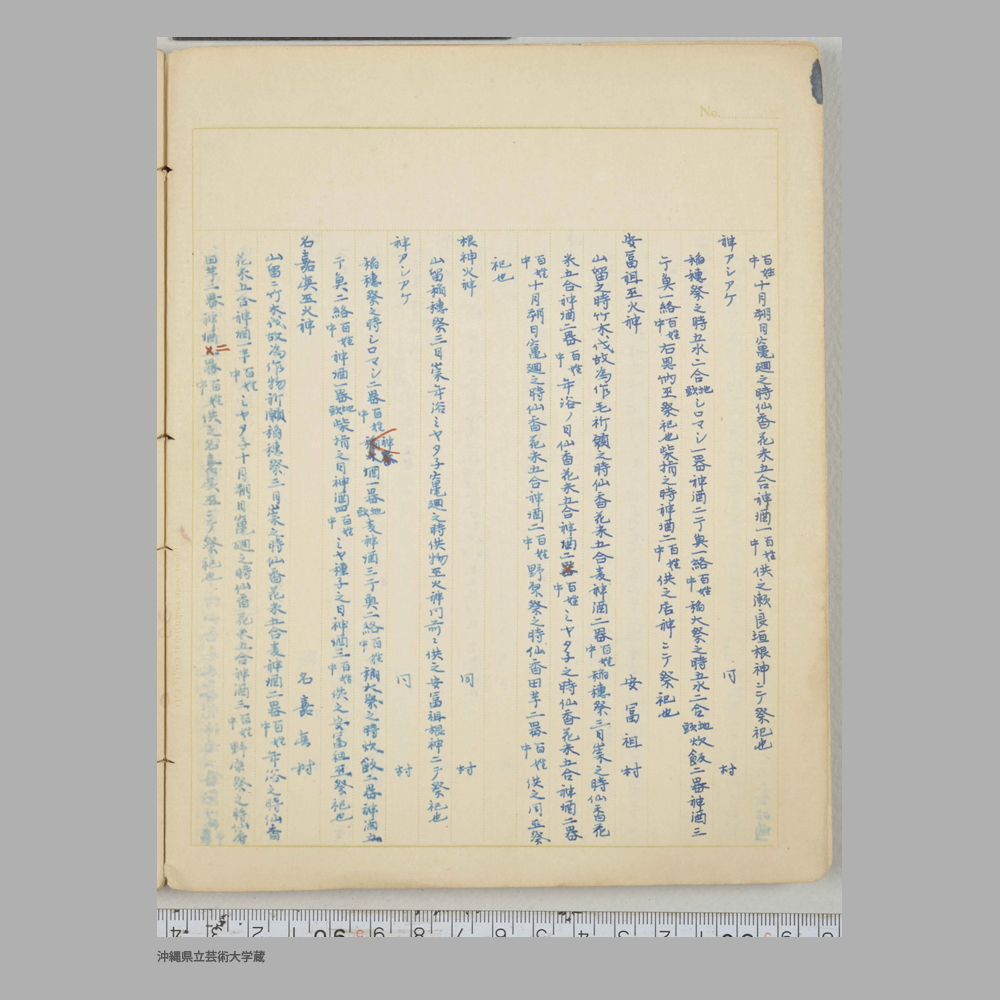 No.
百姓中十月朔日竈廻之時仙香花米五合神酒一百姓中供之瀬良垣根神ニテ祭祀也
神アシアケ 同村
稲穂祭之時五水二合地頭シロマシ一器神酒二于奥一絡百姓中稲大祭之時五水二合地頭炊飯二器神酒三
于奥一絡百姓中右恩納巫祭祀也柴指之時神酒二百姓中供之居神ニテ祭祀也
安冨祖巫火神 安冨祖村
山留之時竹木伐故為作毛祈願之時仙香花米五合麦神酒二器百姓中稲穂祭三日崇之時仙香花
米五合神酒二器百姓中年浴ノ日仙香花米五合神酒二器百姓中ミヤタ子之時仙香花米五合神酒二器
百姓中十月朔日竈廻之時仙香花米五合神酒二百姓中野祭祭之時仙香田芋二器百姓中供之同巫祭
祀也
根神火神 同村
山留稲穂祭三日崇年浴ミヤタ子竈廻之時供物巫火神同前ニ供之安冨祖根神ニテ祭祀也
神アシアケ 同村
稲穂祭之時シロマシ二器百姓中神酒一器地頭麦神酒三于奥二絡百姓中稲大祭之時炊飯二器神酒五
于奥二絡百姓中神酒一器地頭柴指之日神酒四百姓中ミヤ種子之日神酒三百姓中供之安冨祖巫祭祀也
名嘉真巫火神 名嘉真村
山留ニ竹木伐故為作物祈願稲穂祭三日崇之時仙香花米五合麦神酒二器百姓中年浴之時仙香
花米五合神酒一百姓中ミヤタ子十月朔日竈廻之時仙香花米五合神酒三百姓中野祭之時仙香
田芋二器神酒二器百姓中供之名嘉真巫ニテ祭祀也
沖縄県立芸術大学蔵